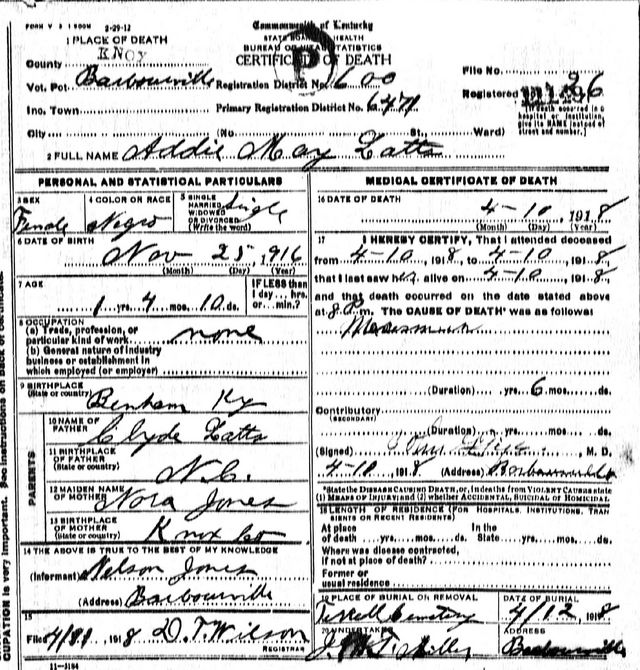 FORM V S 1 500M 2-29-12
Commonwealth of Kentucky
STATE BOARD OF HEALTH
BUREAU OF VITAL STATISTICS
CERTIFICATE OF DEATH
1 PLACE OF DEATH
County KNOX
Vot. Pct Barbourville Registration District No. 600
File No.
Registered No. 96
Inc. Town Primary Registration District No. 6471
[If death occurred in a hospital or institution, give its NAME instead of street and number.]
City (No St., Ward)
2 FULL NAME Addie May Latta
PERSONAL AND STATISTICAL PARTICULARS
3 SEX Female
4 COLOR OR RACE Negro
5 SINGLE MARRIED WIDOWED OR DIVORCED (Write the word) Single
6 DATE OF BIRTH
Nov 25, 1916
(Month) (Day) (Year)
7 AGE
1 yrs. 4 mos. 10 ds.
IF LESS than 1 day...hrs. or...min.?
8 OCCUPATION
(a) Trade, profession, or particular kind of work none
(b) General nature of industry
business or establishment in
which employed (or employer)
9 BIRTHPLACE
(State or country) Benham Ky
PARENTS
10 NAME OF FATHER Clyde Latta
11 BIRTHPLACE OF FATHER (State or country) N.C.
12 MAIDEN NAME OF MOTHER Nora Jones
13 BIRTHPLACE OF MOTHER (State or country) Knox Co
14 THE ABOVE IS TRUE TO THE BEST OF MY KNOWLEDGE
(Informant) Nelson Jones
(Address) Barbourville
15
Filed 1918 D. T. Wilson
REGISTRAR
11-3184
MEDICAL CERTIFICATE OF DEATH
16 DATE OF DEATH
4-10, 1918
(Month) (Day) (Year)
17 I HEREBY CERTIFY, That I attended deceased
from 4-10, 1918, to 4-10, 1918
that I last saw her alive on 4-10, 1918
and that death occurred on the date stated above
at m. The CAUSE OF DEATH* was as follows:
(Duration) yrs. 6 mos. ds.
Contributory
(SECONDARY)
(Duration) yrs. mos. ds.
(Signed) M. D.
4-10 1918 (Address) Barbourville
*State the DISEASE CAUSING DEATH, or, in deaths from VIOLENT CAUSES state
(1) MEANS OF INJURY; and (2) whether ACCIDENTAL, SUICIDAL OR HOMICIDAL.
18 LENGTH OF RESIDENCE (FOR HOSPITALS, INSTITUTIONS, TRANSIENTS OR RECENT RESIDENTS)
At place of death yrs. mos. ds. In the State yrs. mos. ds.
Where was disease contracted,
if not at place of death?
Former or
usual residence
19 PLACE OF BURIAL OR REMOVAL DATE OF BURIAL
Cemetery 4/12, 1918
20 UNDERTAKER ADDRESS
Miller Barbourville
OCCUPATION is very important. See instructions on back of certificate.